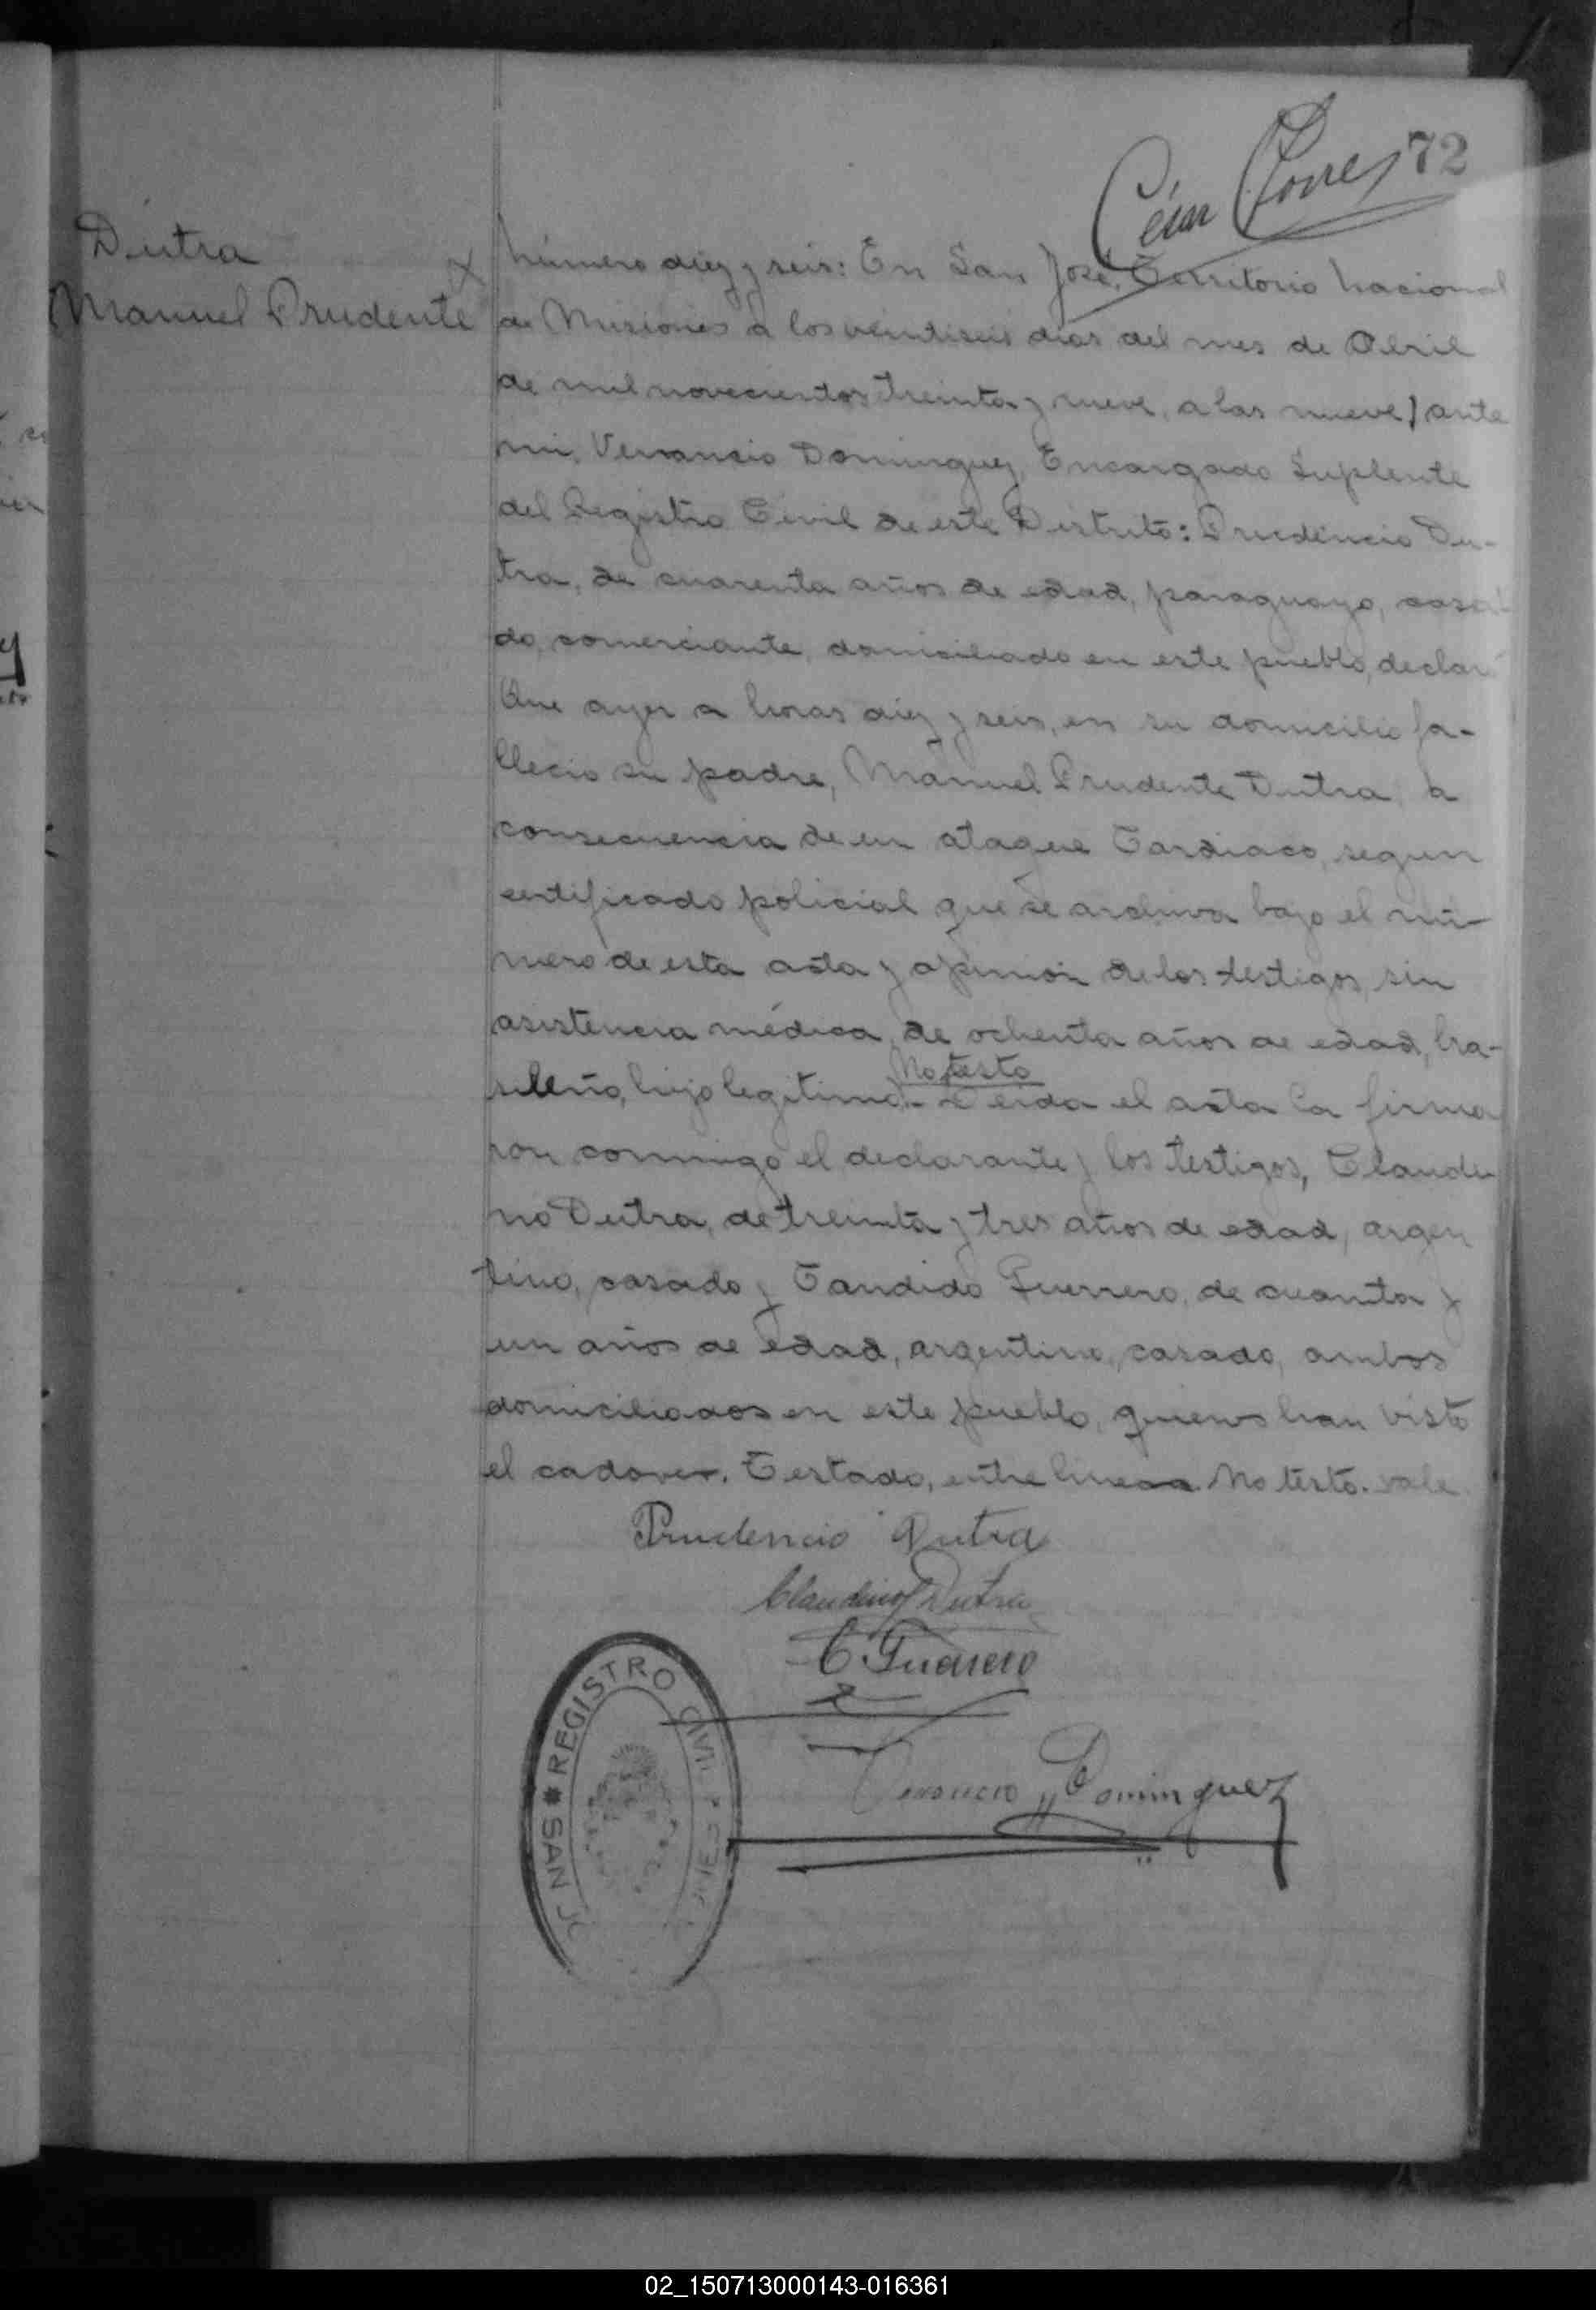 César Torres 72
Dutra
Manuel Prudente
Número diez y seis: En San José, Territorio Nacional
de Misiones a los veintiseis dias del mes de Abril
de mil novecientos treinta y nueve, a las nueve, ante
mi, Venancio Dominguez, Encargado Suplente
del Registro Civil de este Distrito: Prudencio Du-
tra, de cuarenta años de edad, paraguayo, casa
do, comerciante, domiciliado en este pueblo, declaró
Que ayer a horas diez y seis, en su domicilio fa-
llecio su padre, Manuel Prudente Dutra, a
consecuencia de un ataque Cardiaco, segun
certificado policial que se archiva bajo el nú-
mero de esta acta y opinión de los testigos, sin
asistencia médica, de ochenta años de edad, bra-
No testo
sileño, hijo legitimo.- Leida el acta la firma
ron conmigo el declarante y los testigos, Claudi
no Dutra, de treinta y tres años de edad, argen
tino, casado y Candido Guerrero, de cuarnta y
un años de edad, argentino, casado, ambos
domiciliados en este pueblo, quienes han visto
el cadaver. Testado, entre lineas No testo. vale.
Prudencio Dutra
Claudino Dutra
C. Guerrero
Venancio Dominguez
REGISTRO CIVIL
SAN JO
02_150713000143-016361